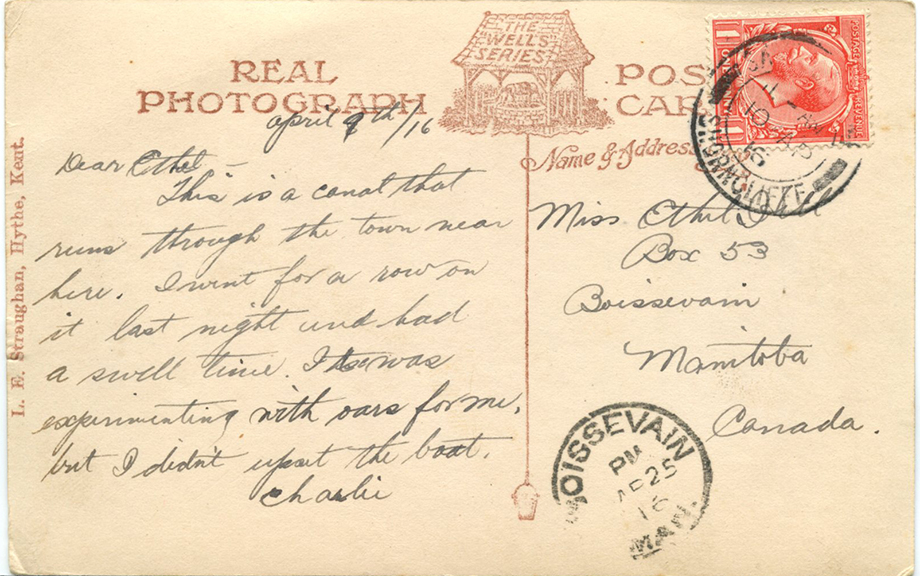 THE
"WELLS"
SERIES
REAL
PHOTOGRAPH
POST
CARD
april 9th/16
Name & Address
Dear Ethel –
This is a canal that
runs through the town near
here. I went for a row on
it last night and had
a swell time. It was
experimenting with oars for me,
but I didn't upset the boat.
Charlie
Miss Ethel
Box 53
Boissevain
Manitoba
Canada.
L. E. Straughan, Hythe, Kent.
SHORNCLIFFE
10 AP
16
BOISSEVAIN
PM
AP 25
16
MAN.